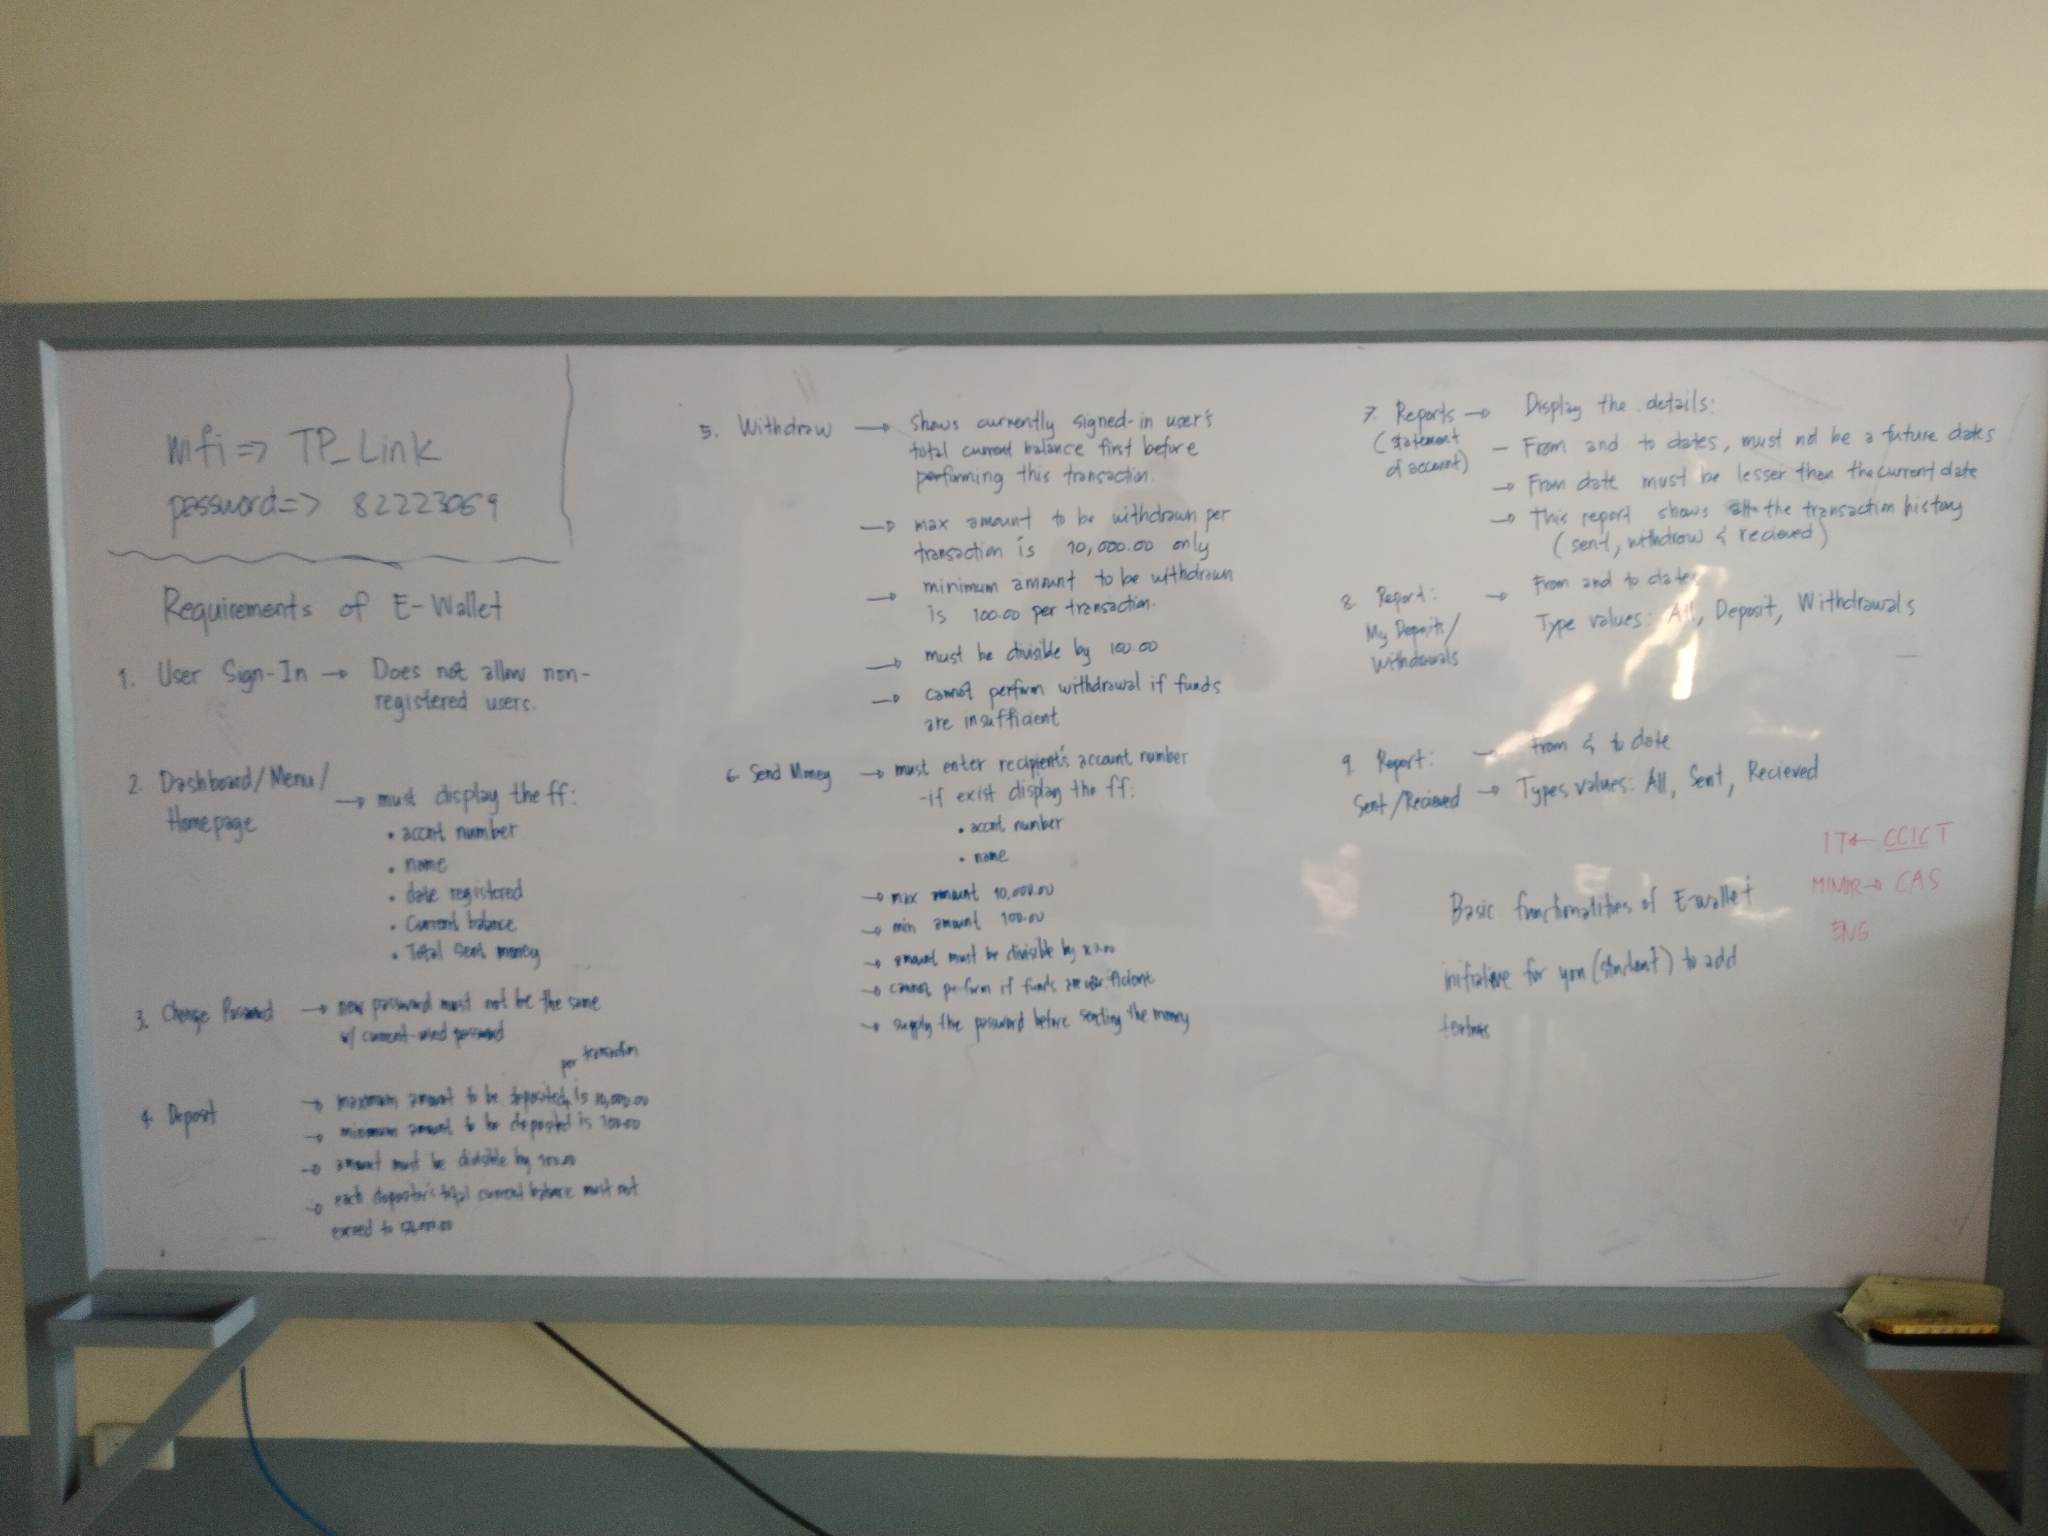 mfi => TP_Link
password => 82223069
Requirements of E-Wallet
1. User Sign-In → Does not allow non-
registered users.
2. Dashboard/Menu/
Homepage
→ must display the ff:
• accnt number
• name
• date registered
• Current balance
• Total sent money
3. Change Password → new password must not be the same
w/ current used password
4. Deposit
per transaction
→ maximum amount to be deposited is 10,000.00
→ minimum amount to be deposited is 100.00
→ amount must be divisible by 100.00
→ each depositor's total current balance must not
exceed to
5. Withdraw → shows currently signed-in user's
total current balance first before
performing this transaction.
→ max amount to be withdrawn per
transaction is 10,000.00 only
→ minimum amount to be withdrawn
is 100.00 per transaction.
→ must be divisible by 100.00
→ cannot perform withdrawal if funds
are insufficient
6. Send Money → must enter recipient's account number
- if exist display the ff:
• accnt number
• name
→ max amount 10,000.00
→ min amount 100.00
→ amount must be divisible by
→ cannot perform if funds are
→ supply the password before sending the money
7. Reports → Display the details:
(statement
of account)
– From and to dates, must not be a future dates
→ From date must be lesser than the current date
→ This report shows the transaction history
(sent, withdrow & recieved)
8. Report:
My Deposits/
Withdrawals
→ From and to dates
Type values: All, Deposit, Withdrawals
9. Report:
Sent/Recieved
→ From & to date
→ Types values: All, Sent, Recieved
IT← CCICT
MINOR→ CAS
ENG
Basic functionalities of E-wallet
initiative for you (student) to add